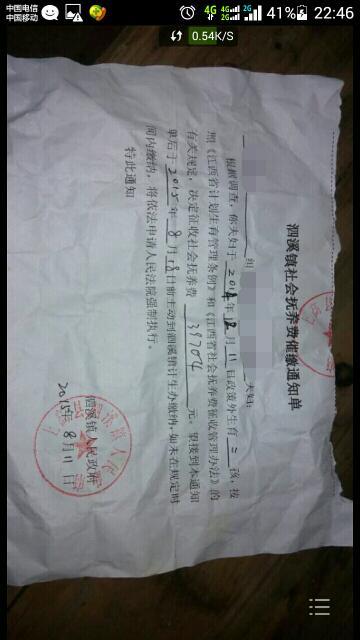 中国电信
中国移动
4G 4G 2G 41% 22:46
0.54K/S
泗溪镇社会抚养费催缴通知单
夫妇:
根据调查,你夫妇于2014年12月11日政策外生育二孩,按
照《江西省计划生育管理条例》和《江西省社会抚养费征收管理办法》的
有关规定,决定征收社会抚养费39704元。望接到本通知
单后于2015年8月18日前主动到泗溪镇计生办缴纳,如未在规定时
间内缴纳,将依法申请人民法院强制执行。
特此通知
泗溪镇人民政府
2015年8月11日